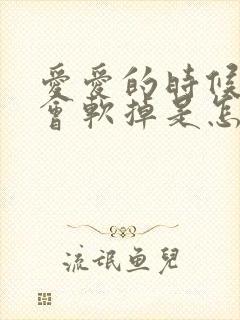 愛愛的時候
會軟掉是怎
流氓鱼兒